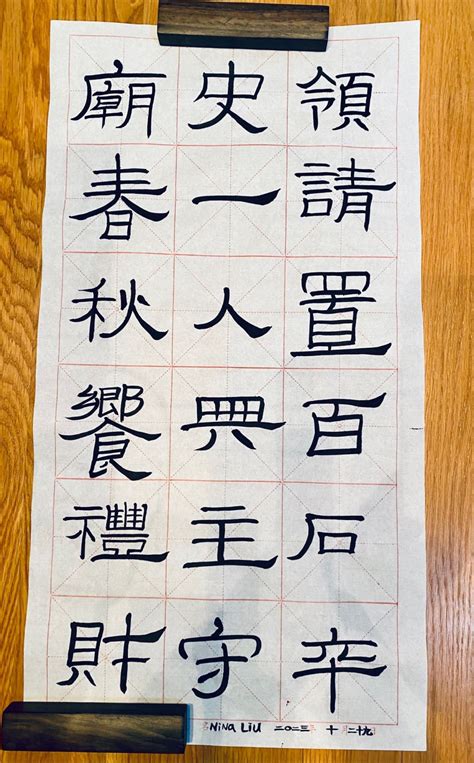 領請置百石卒
史一人典主守
廟春秋饗禮財
NiNa LiU 二〇二三 十 二十九